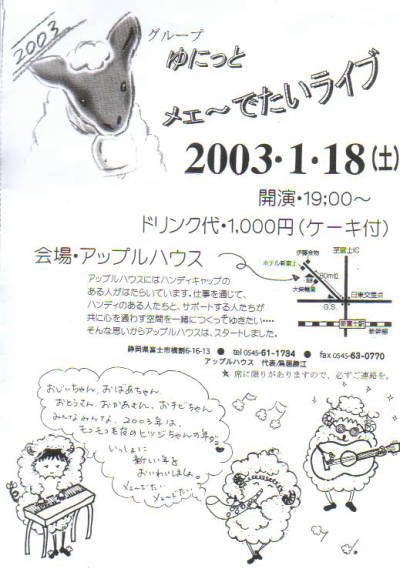 2003
グループ
ゆにっと
メェ～でたいライブ
2003・1・18(土)
開演・19;00～
ドリンク代・1,000円(ケーキ付)
会場・アップルハウス
アップルハウスにはハンディキャップの
ある人がはたらいています。仕事を通じて、
ハンディのある人たちと、サポートする人たちが
共に心を通わす空間を一緒につくってゆきたい‥‥
そんな思いからアップルハウスは、スタートしました。
至富士IC
ホテル新富士
G.S.
新富士駅
新幹線
静岡県富士市横割6-16-13 ● tel 0545-61-1734 ● fax 0545-63-0770
アップルハウス 代表/鳥居勝江
☆ 席に限りがありますので、必ずご連絡を。
おじいちゃん、おばあちゃん
おとうさん、おかあさん、おチビちゃん
みんなみんな、2003年は、
モコモコ毛皮のヒツジちゃんの年。
いっしょに
新しい年を
おいわいしましょ。
メェーでたい
メェーでたい